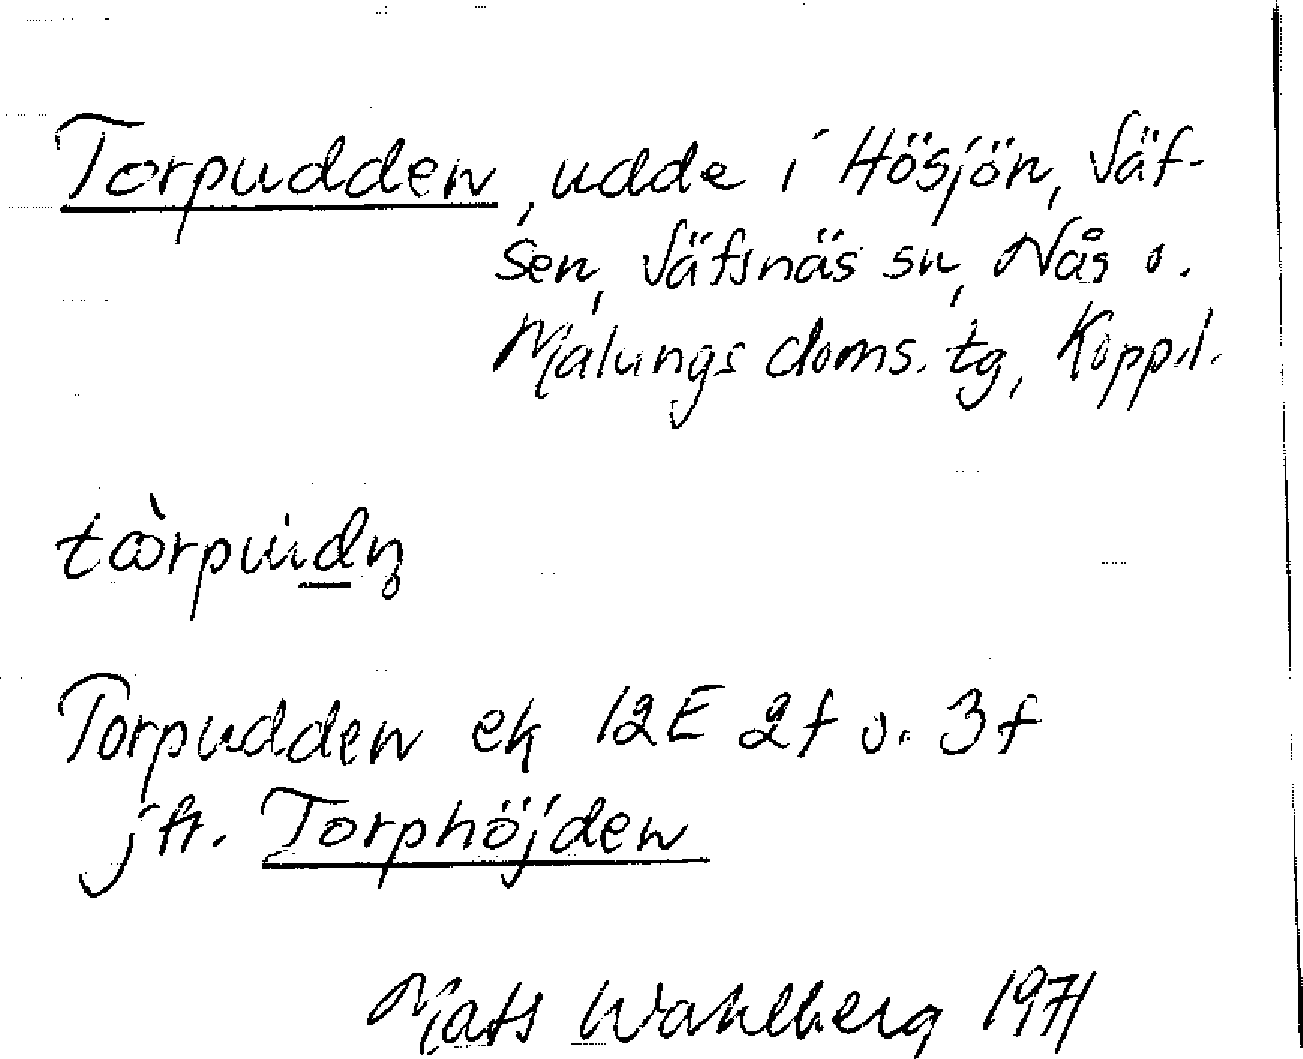 Torpudden, udde i Hösjön, Säf-
sen, Säfsnäs sn, Nås o.
Malungs doms. tg, Kopp.l.
Torpudden ek 12E 2f o. 3f
jfr. Torphöjden
Mats Wahlberg 1971